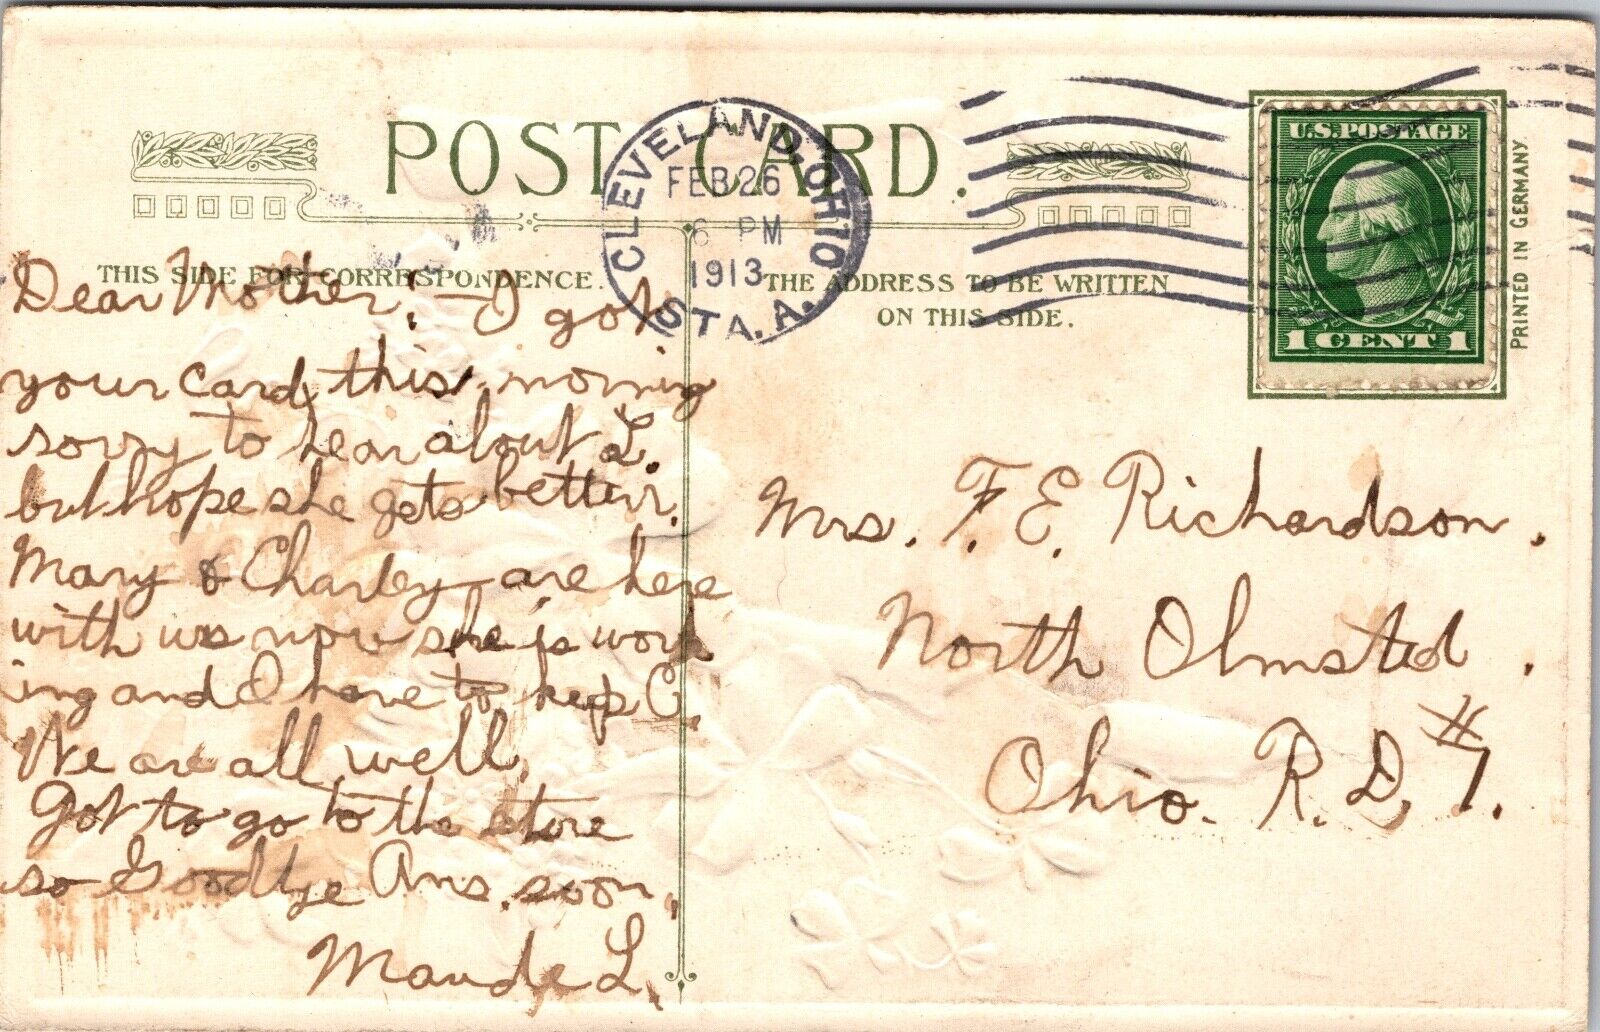 POST CARD.
CLEVELAND, OHIO
FEB 26
6 PM
1913
STA. A.
U.S. POSTAGE
1 CENT 1
PRINTED IN GERMANY
THIS SIDE FOR CORRESPONDENCE.
THE ADDRESS TO BE WRITTEN
ON THIS SIDE.
Dear Mother:- I got
your card this morning
sorry to hear about L.
but hope she gets better.
Mary & Charley are here
with us now she is work
ing and I have to keep C.
We are all well.
Got to go to the store
so Goodbye Ans. soon.
Maude L.
Mrs. F. E. Richardson.
North Olmsted.
Ohio. R. D. #1.